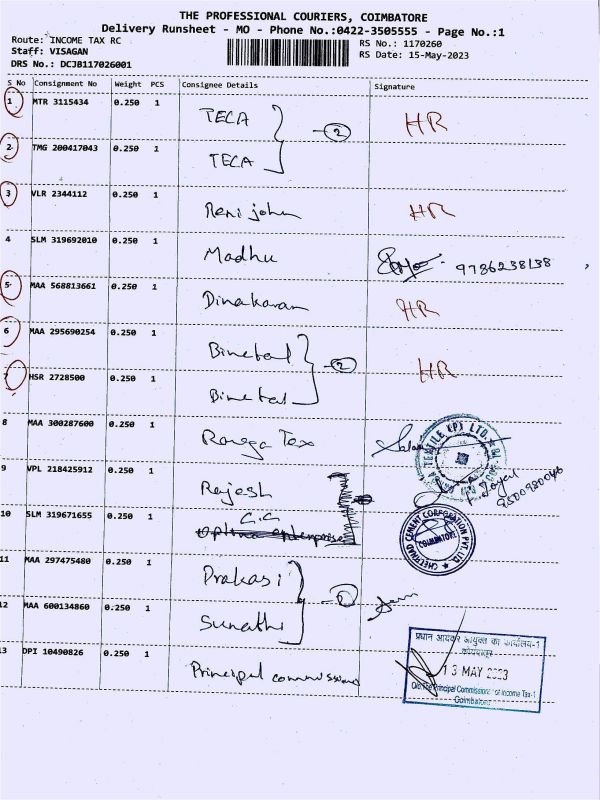 THE PROFESSIONAL COURIERS, COIMBATORE
Delivery Runsheet - MO - Phone No.:0422-3505555 - Page No.:1
Route: INCOME TAX RC
RS No.: 1170260
Staff: VISAGAN
RS Date: 15-May-2023
DRS No.: DCJB117026001
S No Consignment No Weight PCS Consignee Details Signature
1 MTR 3115434 0.250 1 TECA 2 HR
2 TMG 200417043 0.250 1 TECA
3 VLR 2344112 0.250 1 Reni john HR
4 SLM 319692010 0.250 1 Madhu 9786238138
5 MAA 568813661 0.250 1 Dinakaran HR
6 MAA 295690254 0.250 1 Bimetal 2 HR
7 HSR 2728500 0.250 1 Bimetal
8 MAA 300287600 0.250 1 Ranga Tex
TEXTILE (P) LTD.
9 VPL 218425912 0.250 1 Rajesh
10 SLM 319671655 0.250 1 C.C
CHETTINAD CEMENT CORPORATION PVT. LTD.
COIMBATORE
11 MAA 297475480 0.250 1 Prakasi 2
12 MAA 600134860 0.250 1 Sunathi
13 DPI 10490826 0.250 1 Principal commissioner
प्रधान आयकर आयुक्त का कार्यालय-1
कोयम्बत्तूर
13 MAY 2023
O/o The Principal Commissioner of Income Tax-1
Coimbatore